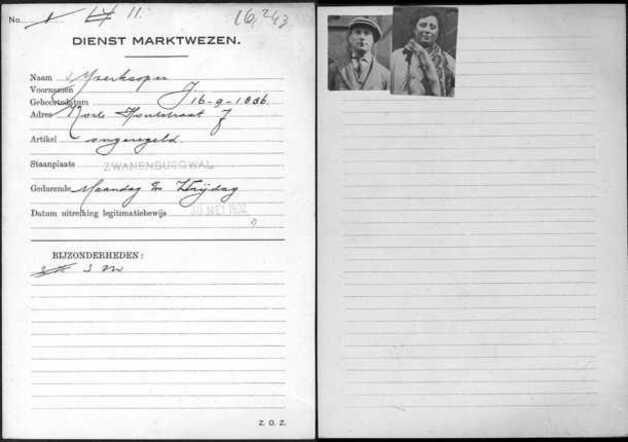 No. 11. 16,243
DIENST MARKTWEZEN.
Naam IJzerkooper
Voornamen J
Geboortedatum 16-9-1886.
Adres Korte Houtstraat 7
Artikel ongeregeld.
Staanplaats ZWANENBURGWAL
Gedurende Maandag en Vrijdag
Datum uitreiking legitimatiebewijs
BIJZONDERHEDEN:
Z. O. Z.